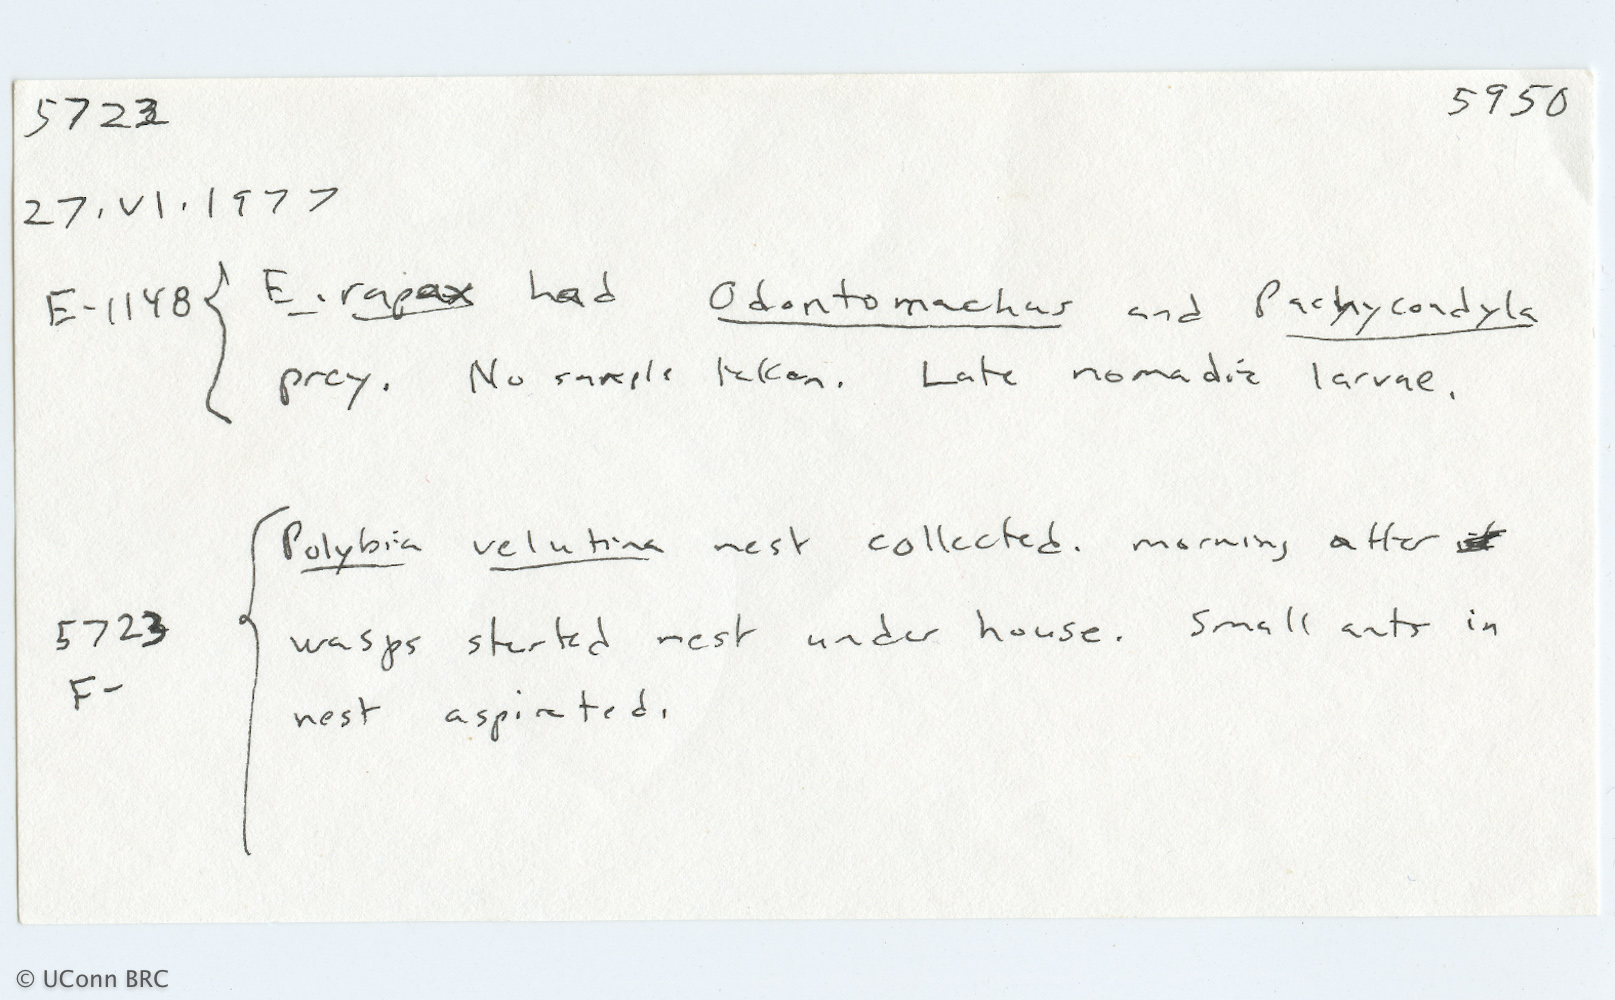 5723
5950
27.VI.1977
E-1148 { E. rapax had Odontomachus and Pachycondyla
prey. No sample taken. Late nomadic larvae.
Polybia velutina nest collected. morning after
5723 { wasps started nest under house. Small ants in
F-
nest aspirated.
© UConn BRC